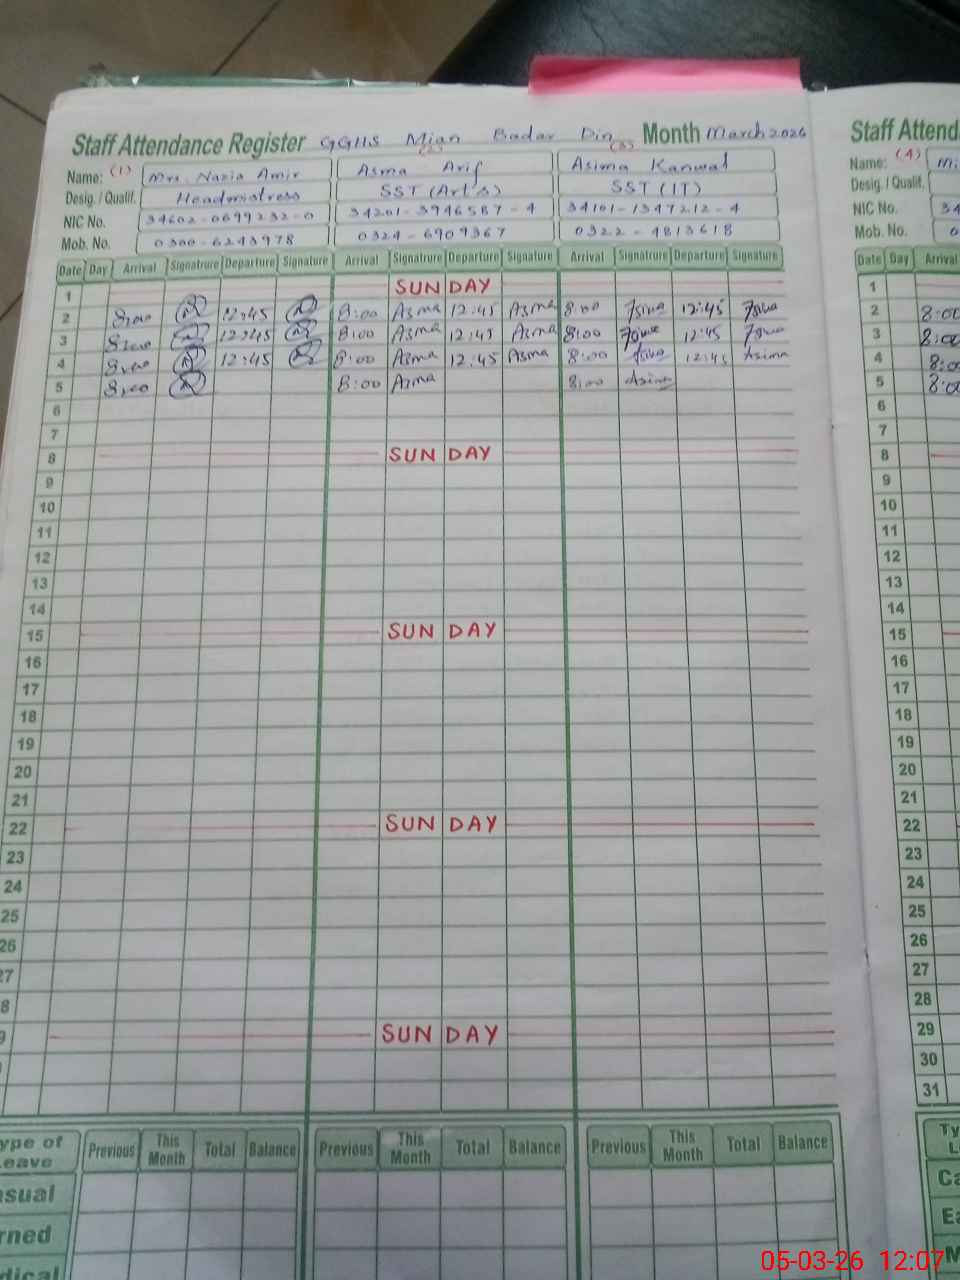 Staff Attendance Register GGHS Mian Badar Din Month March 2026
Name: (1) Mrs. Nazia Amir (2) Asma Arif (3) Asima Kanwal
Desig. / Qualif. Headmistress SST (Art's) SST (IT)
NIC No. 34602-0699232-0 34201-3946587-4 34101-1347212-4
Mob. No. 0300-6243978 0324-6909367 0322-4813618
Date Day Arrival Signatrure Departure Signature Arrival Signatrure Departure Signature Arrival Signatrure Departure Signature
1 SUNDAY
2 8:00 12:45 8:00 Asma 12:45 Asma 8:00 12:45
3 8:00 12:45 8:00 Asma 12:45 Asma 8:00 12:45
4 8:00 12:45 8:00 Asma 12:45 Asma 8:00 12:45 Asima
5 8:00 8:00 Asma 8:00 Asima
6
7
8 SUNDAY
9
10
11
12
13
14
15 SUNDAY
16
17
18
19
20
21
22 SUNDAY
23
24
25
26
27
8
9 SUNDAY
ype of eave Previous This Month Total Balance Previous This Month Total Balance Previous This Month Total Balance
asual
rned
dical
Staff Attend
Name: (4) Mi
Desig. / Qualif.
NIC No. 34
Mob. No. 0
Date Day Arrival
1
2 8:00
3 8:00
4 8:00
5 8:00
6
7
8
9
10
11
12
13
14
15
16
17
18
19
20
21
22
23
24
25
26
27
28
29
30
31
Ty
L
Ca
Ea
M
05-03-26 12:07